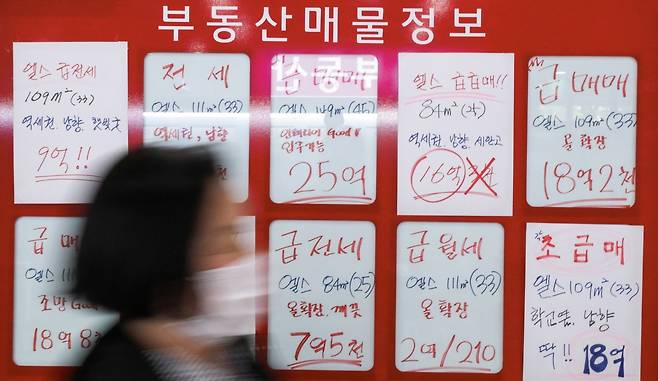 부동산매물정보
엘스 급전세
109m²(33)
역세권, 남향
9억!!
전 세
엘스 111m²(33)
역세권, 남향
급매매
엘스 149m²(45)
인테리어 Good!
입주가능
25억
엘스 급급매!!
84m²(25)
역세권, 남향, 세안고
16억
급매매
엘스 109m²(33)
올확장
18억2천
급매
엘스 111
조망 Good
18억
급전세
엘스 84m²(25)
올확장, 깨끗
7억5천
급월세
엘스 111m²(33)
올확장
2억/210
초급매
엘스 109m²(33)
학교옆, 남향
딱!! 18억